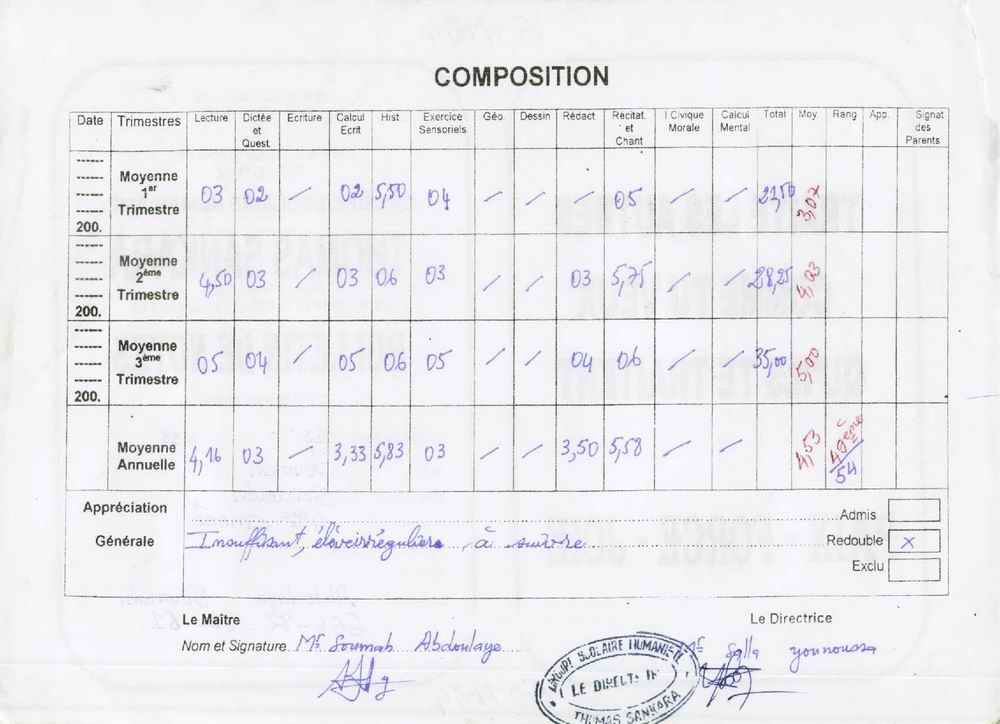 COMPOSITION
Date Trimestres Lecture Dictée et Quest. Ecriture Calcul Ecrit Hist Exercice Sensoriels Géo. Dessin Rédact Récitat. et Chant I Civique Morale Calcul Mental Total Moy Rang App. Signat des Parents
------ ------ ------ ------ 200. Moyenne 1er Trimestre 03 02 / 02 5,50 04 / / / 05 / / 21,50 3,07
------ ------ ------ ------ 200. Moyenne 2ème Trimestre 4,50 03 / 03 06 03 / / 03 5,75 / / 28,25 4,03
------ ------ ------ ------ 200. Moyenne 3ème Trimestre 05 04 / 05 06 05 / / 04 06 / / 35,00 5,00
Moyenne Annuelle 4,16 03 / 3,33 5,83 03 / / 3,50 5,58 / / 4,53 40ème/54
Appréciation Générale
Admis
Insuffisant, élève irrégulière, à suivre Redouble x
Exclu
Le Maître La Directrice
Nom et Signature. Mr Soumah Abdoulaye Mr Sylla younoussa
GROUPE SCOLAIRE HUMANITE
LE DIRECTEUR
THOMAS SANKARA